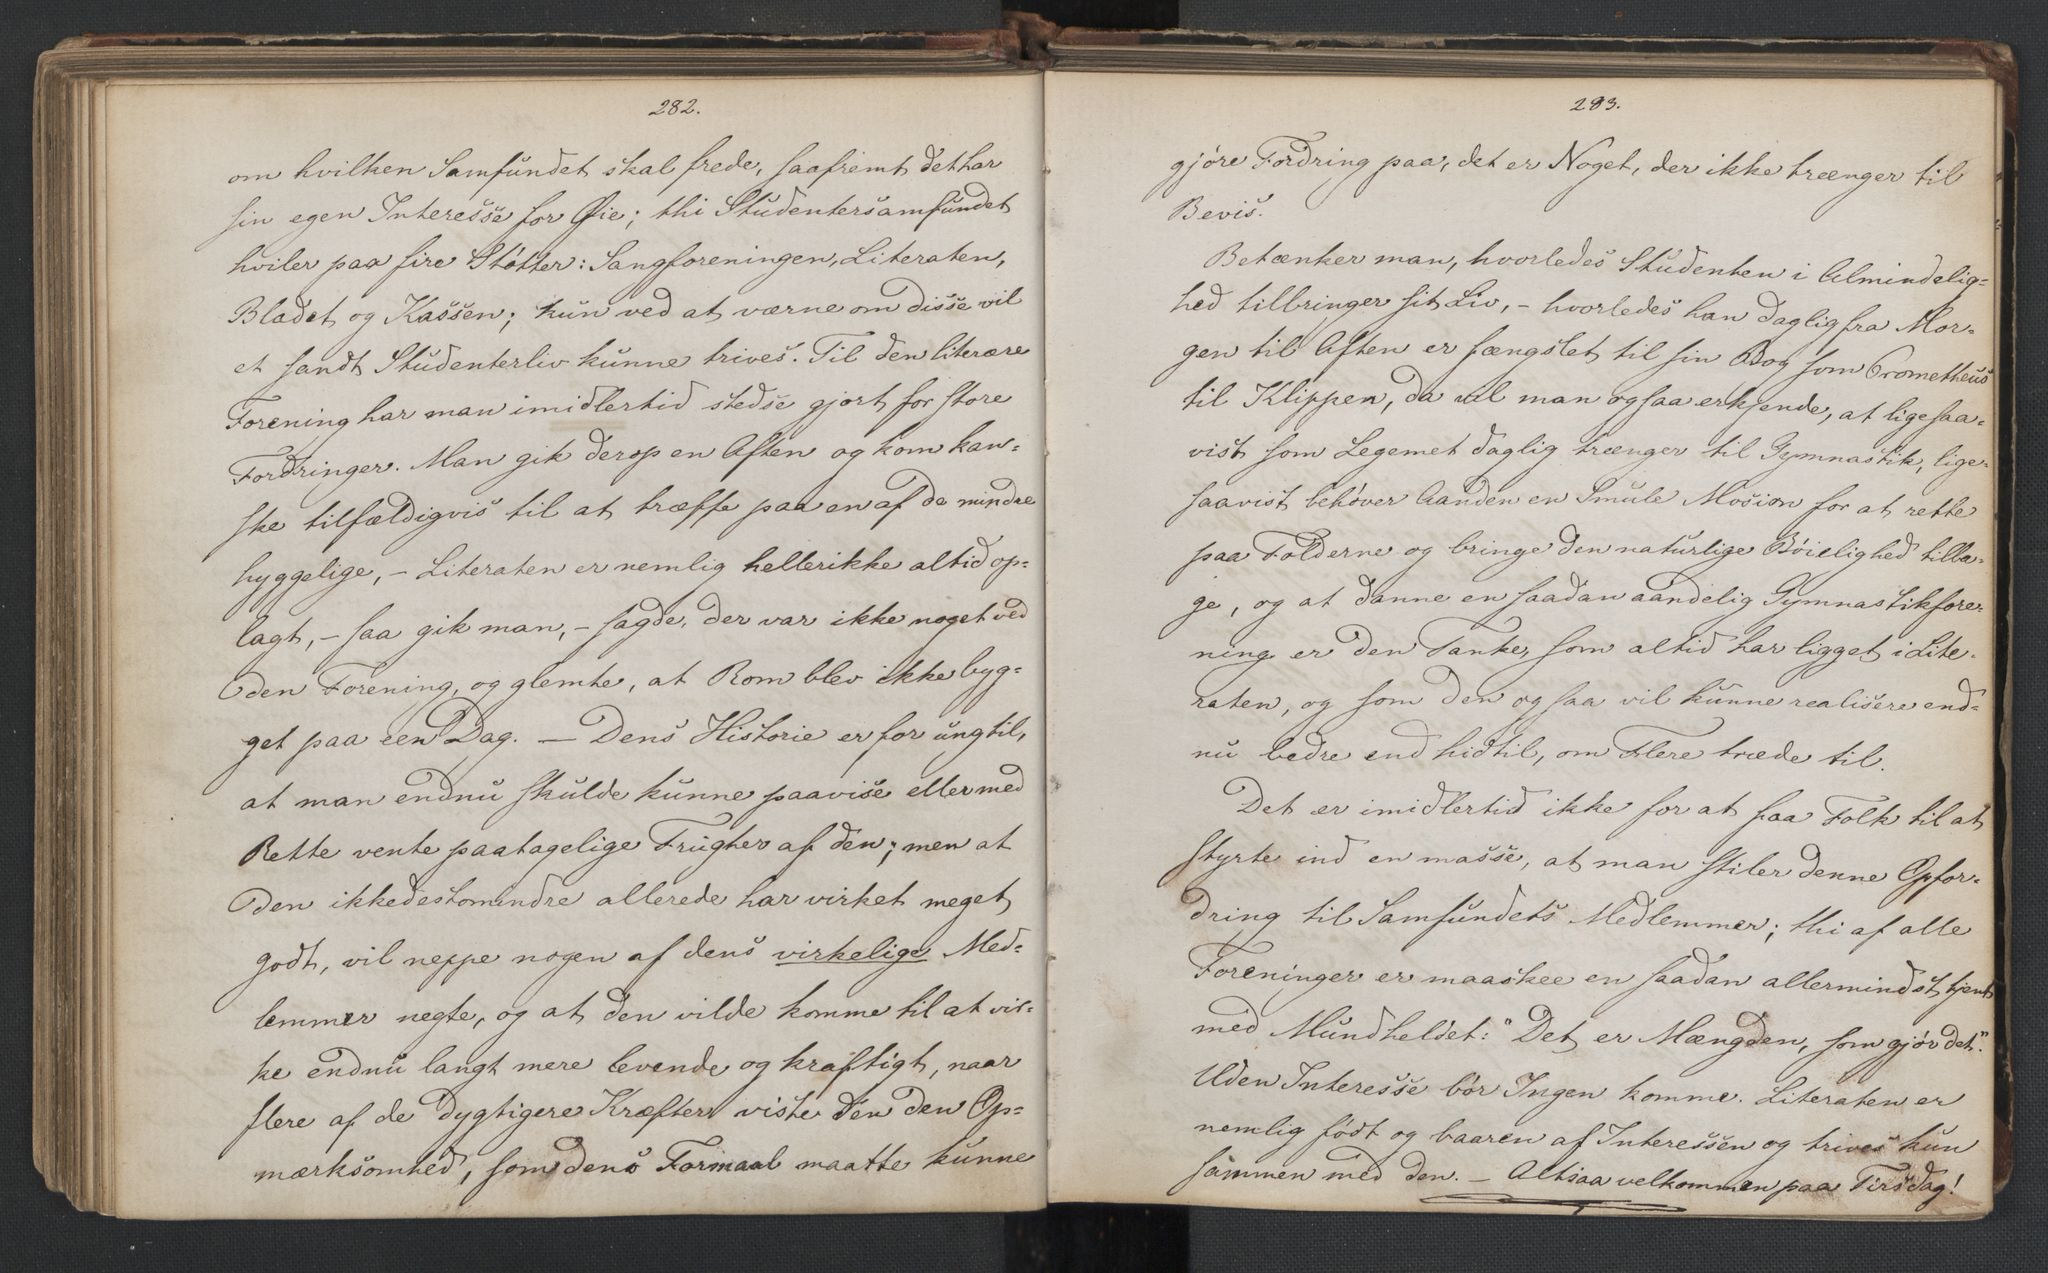 282.
om hvilken Samfundet skal frede, saafremt det har
sin egen Interesse for Øie; thi Studentersamfundet
hviler paa fire Støtter: Sangforeningen, Literaten,
Bladet og Kassen; kun ved at værne om disse vil
et sandt Studenterliv kunne trives. Til den literære
Forening har man imidlertid stedse gjort for store
Fordringer. Man gik derop en Aften og kom kan-
ske tilfældigvis til at træffe paa en af de mindre
hyggelige, – Literaten er nemlig heller ikke altid op-
lagt, – saa gik man, – sagde, der var ikke noget ved
den Forening, og glemte, at Rom blev ikke byg-
get paa een Dag. – Dens Historie er for ung til,
at man endnu skulde kunne paavise eller med
Rette vente paatagelige Frugter af den; men at
den ikkedestomindre allerede har virket meget
godt, vil neppe nogen af dens virkelige Med-
lemmer negte, og at den vilde komme til at vir-
ke endnu langt mere levende og kraftigt, naar
flere af de dygtigere Kræfter viste den den Op-
mærksomhed, som dens Formaal maatte kunne
283.
gjøre Fordring paa, det er Noget, der ikke trænger til
Bevis.
Betænker man, hvorledes Studenten i Almindelig-
hed tilbringer sit Liv, – hvorledes han daglig fra Mor-
gen til Aften er fængslet til sin Bog som Prometheus
til Klippen, da vil man ogsaa erkjende, at ligesaa-
vist som Legemet daglig trænger til Gymnastik, lige-
saavist behøver Aanden en Smule Mosion for at rette
paa Folderne og bringe den naturlige Bøielighed tilba-
ge, og at danne en saadan aandelig Gymnastikfore-
ning er den Tanke, som altid har ligget i Lite-
raten, og som den ogsaa vil kunne realisere end-
nu bedre end hidtil, om Flere træde til.
Det er imidlertid ikke for at faa Folk til at
styrte ind en masse, at man stiler denne Opfor-
dring til Samfundets Medlemmer; thi af alle
Foreninger er maaskee en saadan allermindst tjent
med Mundheldet: "Det er Mængden, som gjør det".
Uden Interesse bør Ingen komme. Literaten er
nemlig født og baaren af Interessen og trives kun
sammen med den. – Altsaa velkommen paa Tirsdag!